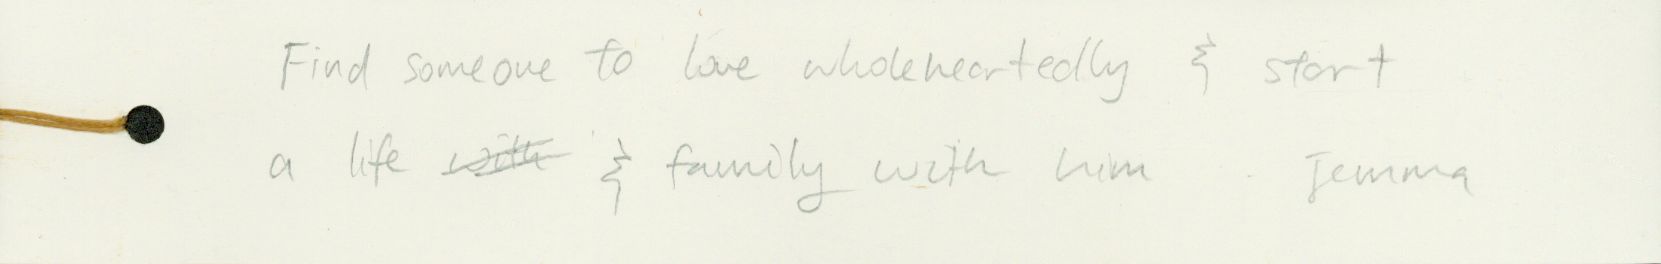 Find someone to love wholeheartedly & start
a life with & family with him Jemma